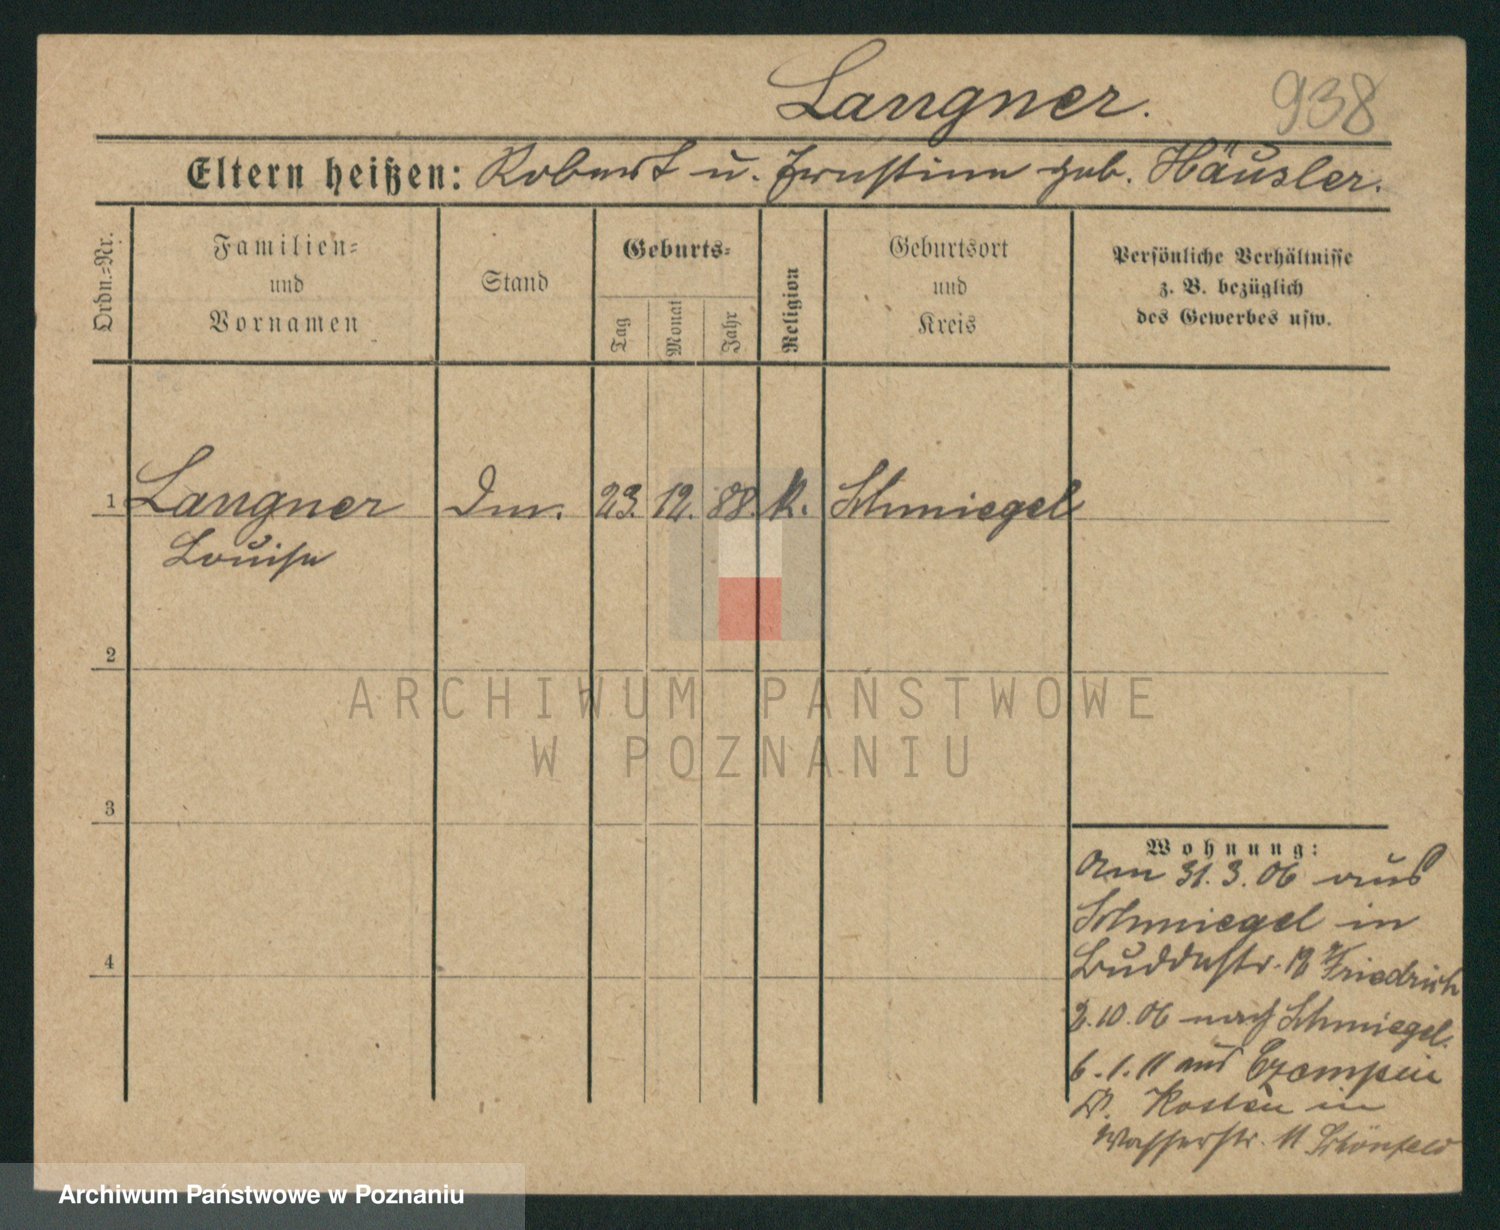 Langner.
938
Eltern heißen: Robert u. Ernstine geb. Häusler.
Ordn.=Nr.
Familien=
und
Vornamen
Stand
Geburts=
Tag
Monat
Jahr
Religion
Geburtsort
und
Kreis
Persönliche Verhältnisse
z. B. bezüglich
des Gewerbes usw.
1 Langner
Louise
23. 12. 88. k. Schmiegel
2
3
4
ARCHIWUM PAŃSTWOWE
W POZNANIU
Wohnung:
Am 31.3.06 aus
Schmiegel in
Buddestr. Friedrich
2.10.06 nach Schmiegel.
6.1.11 aus Czempin
Kosten in
Wasserstr. 11 Schönfeld
Archiwum Państwowe w Poznaniu